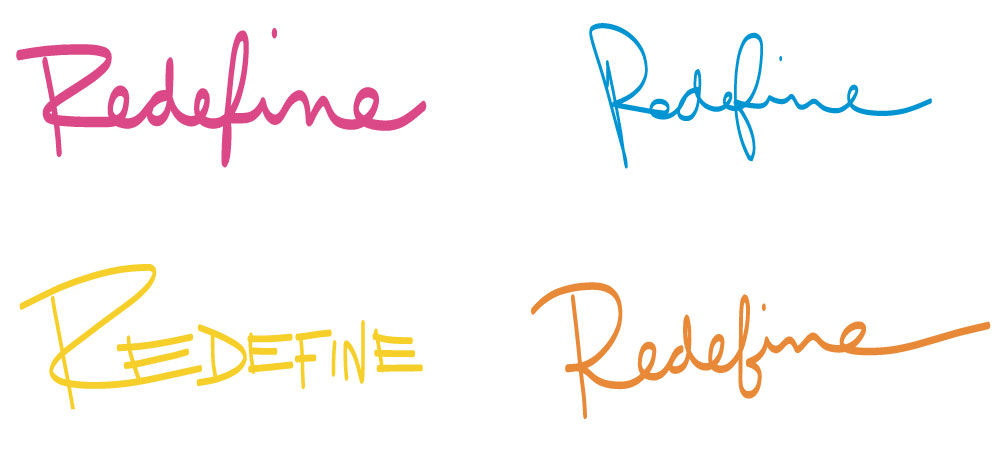 Redefine
Redefine
REDEFINE
Redefine